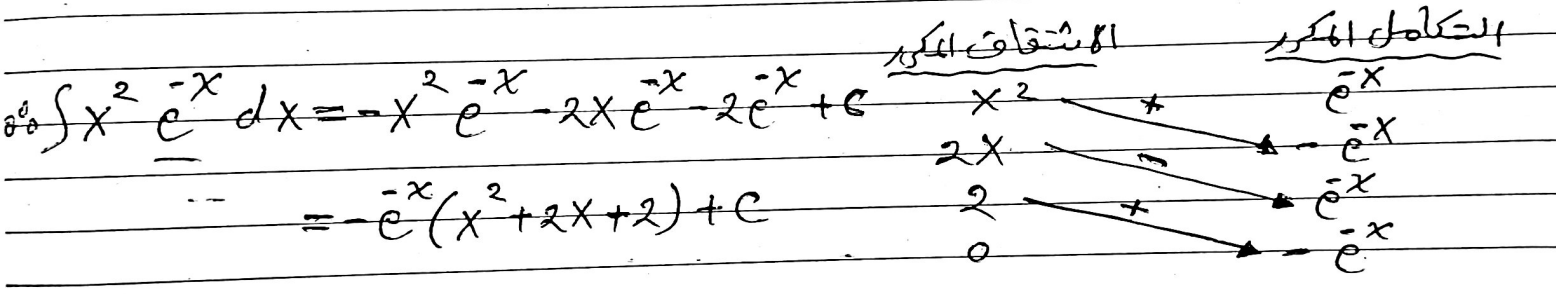 الاشتقاق المكرر التكامل المكرر
∴ ∫ x² e^-x dx = -x² e^-x - 2x e^-x - 2e^-x + c
= -e^-x (x² + 2x + 2) + c
x² + e^-x
2x - - e^-x
2 + e^-x
0 - e^-x